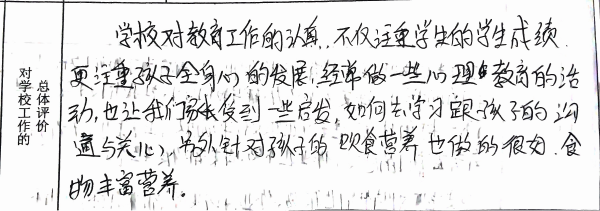 对学校工作的
总体评价
学校对教育工作的认真，不仅注重学生的学生成绩，
更注重孩子全身心的发展，经常做一些心理教育的活
动，也让我们家长受到一些启发，如何去学习跟孩子的沟
通与关心，另外针对孩子的饮食营养也做的很好，食
物丰富营养。